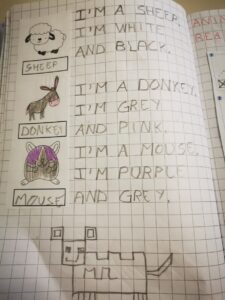 I'M A SHEEP.
I'M WHITE
AND BLACK.
SHEEP
I'M A DONKEY.
I'M GREY
AND PINK.
DONKEY
I'M A MOUSE.
I'M PURPLE
AND GREY.
MOUSE